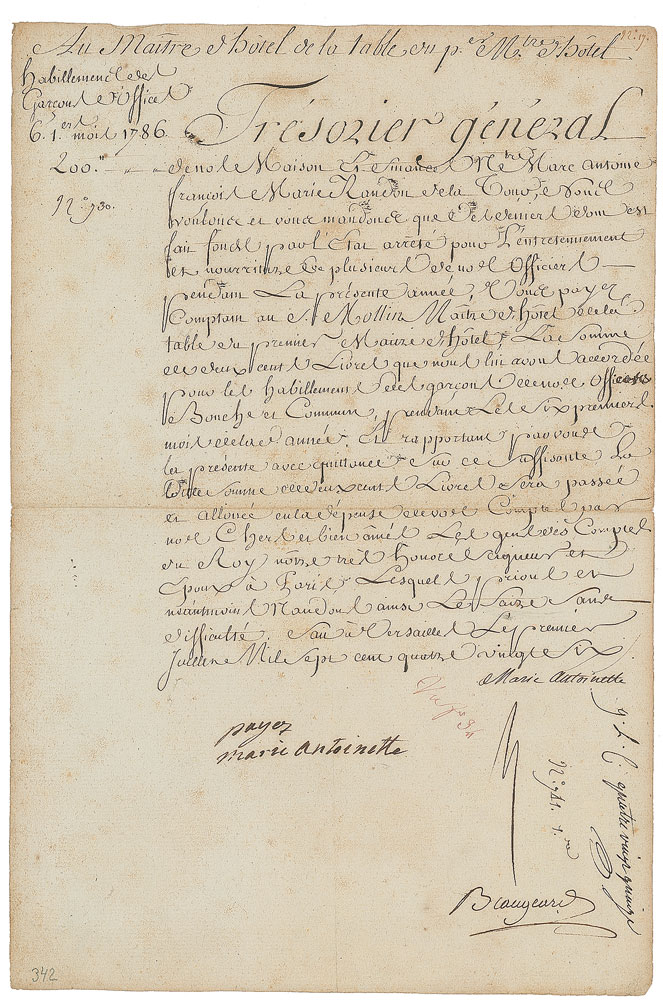 Au Maître d'hôtel de la table du p.er M.tre d'hôtel. N.o 17.
habillement des
Garçons d'Offices
6. 1.ers mois 1786.
Trésorier général
200.tt
N.o 730.
de notre Maison et finances M.tre Marc Antoine
françois Marie Randon de la Tour, Nous
voulons et vous mandons que des deniers dont est
fait fonds par l'Etat arrêté pour L'entretennement
et nourriture de plusieurs de nos Officiers
pendant La présente année, Vous payez
Comptant au S. Mollin Maître d'hôtel de la
table du premier Maitre d'hôtel, La somme
de deux cent Livres que nous lui avons accordée
pour les habillements des garçons de nos Offices
de Bouche et Commun, pendant Les Six premiers
mois de lad. année. Et rapportant par vous
la présente avec quittance Sur ce Suffisante La
dite somme de deux cent Livres sera passée
et allouée en la dépense de vos Comptes par
nos Chers et bien amés Les gens des Comptes
du Roy notre très honoré Seigneur et
Epoux à Paris, Lesquels prions et
néantmoins Mandons ainsi Le faire Sans
difficulté. à Versailles Le premier
Mil Sept cent quatre vingt Six
Marie Antoinette
payez
marie Antoinette
g. L. C. quatre vingt quinze
N.o 741. 1.re
Beaugeard
342